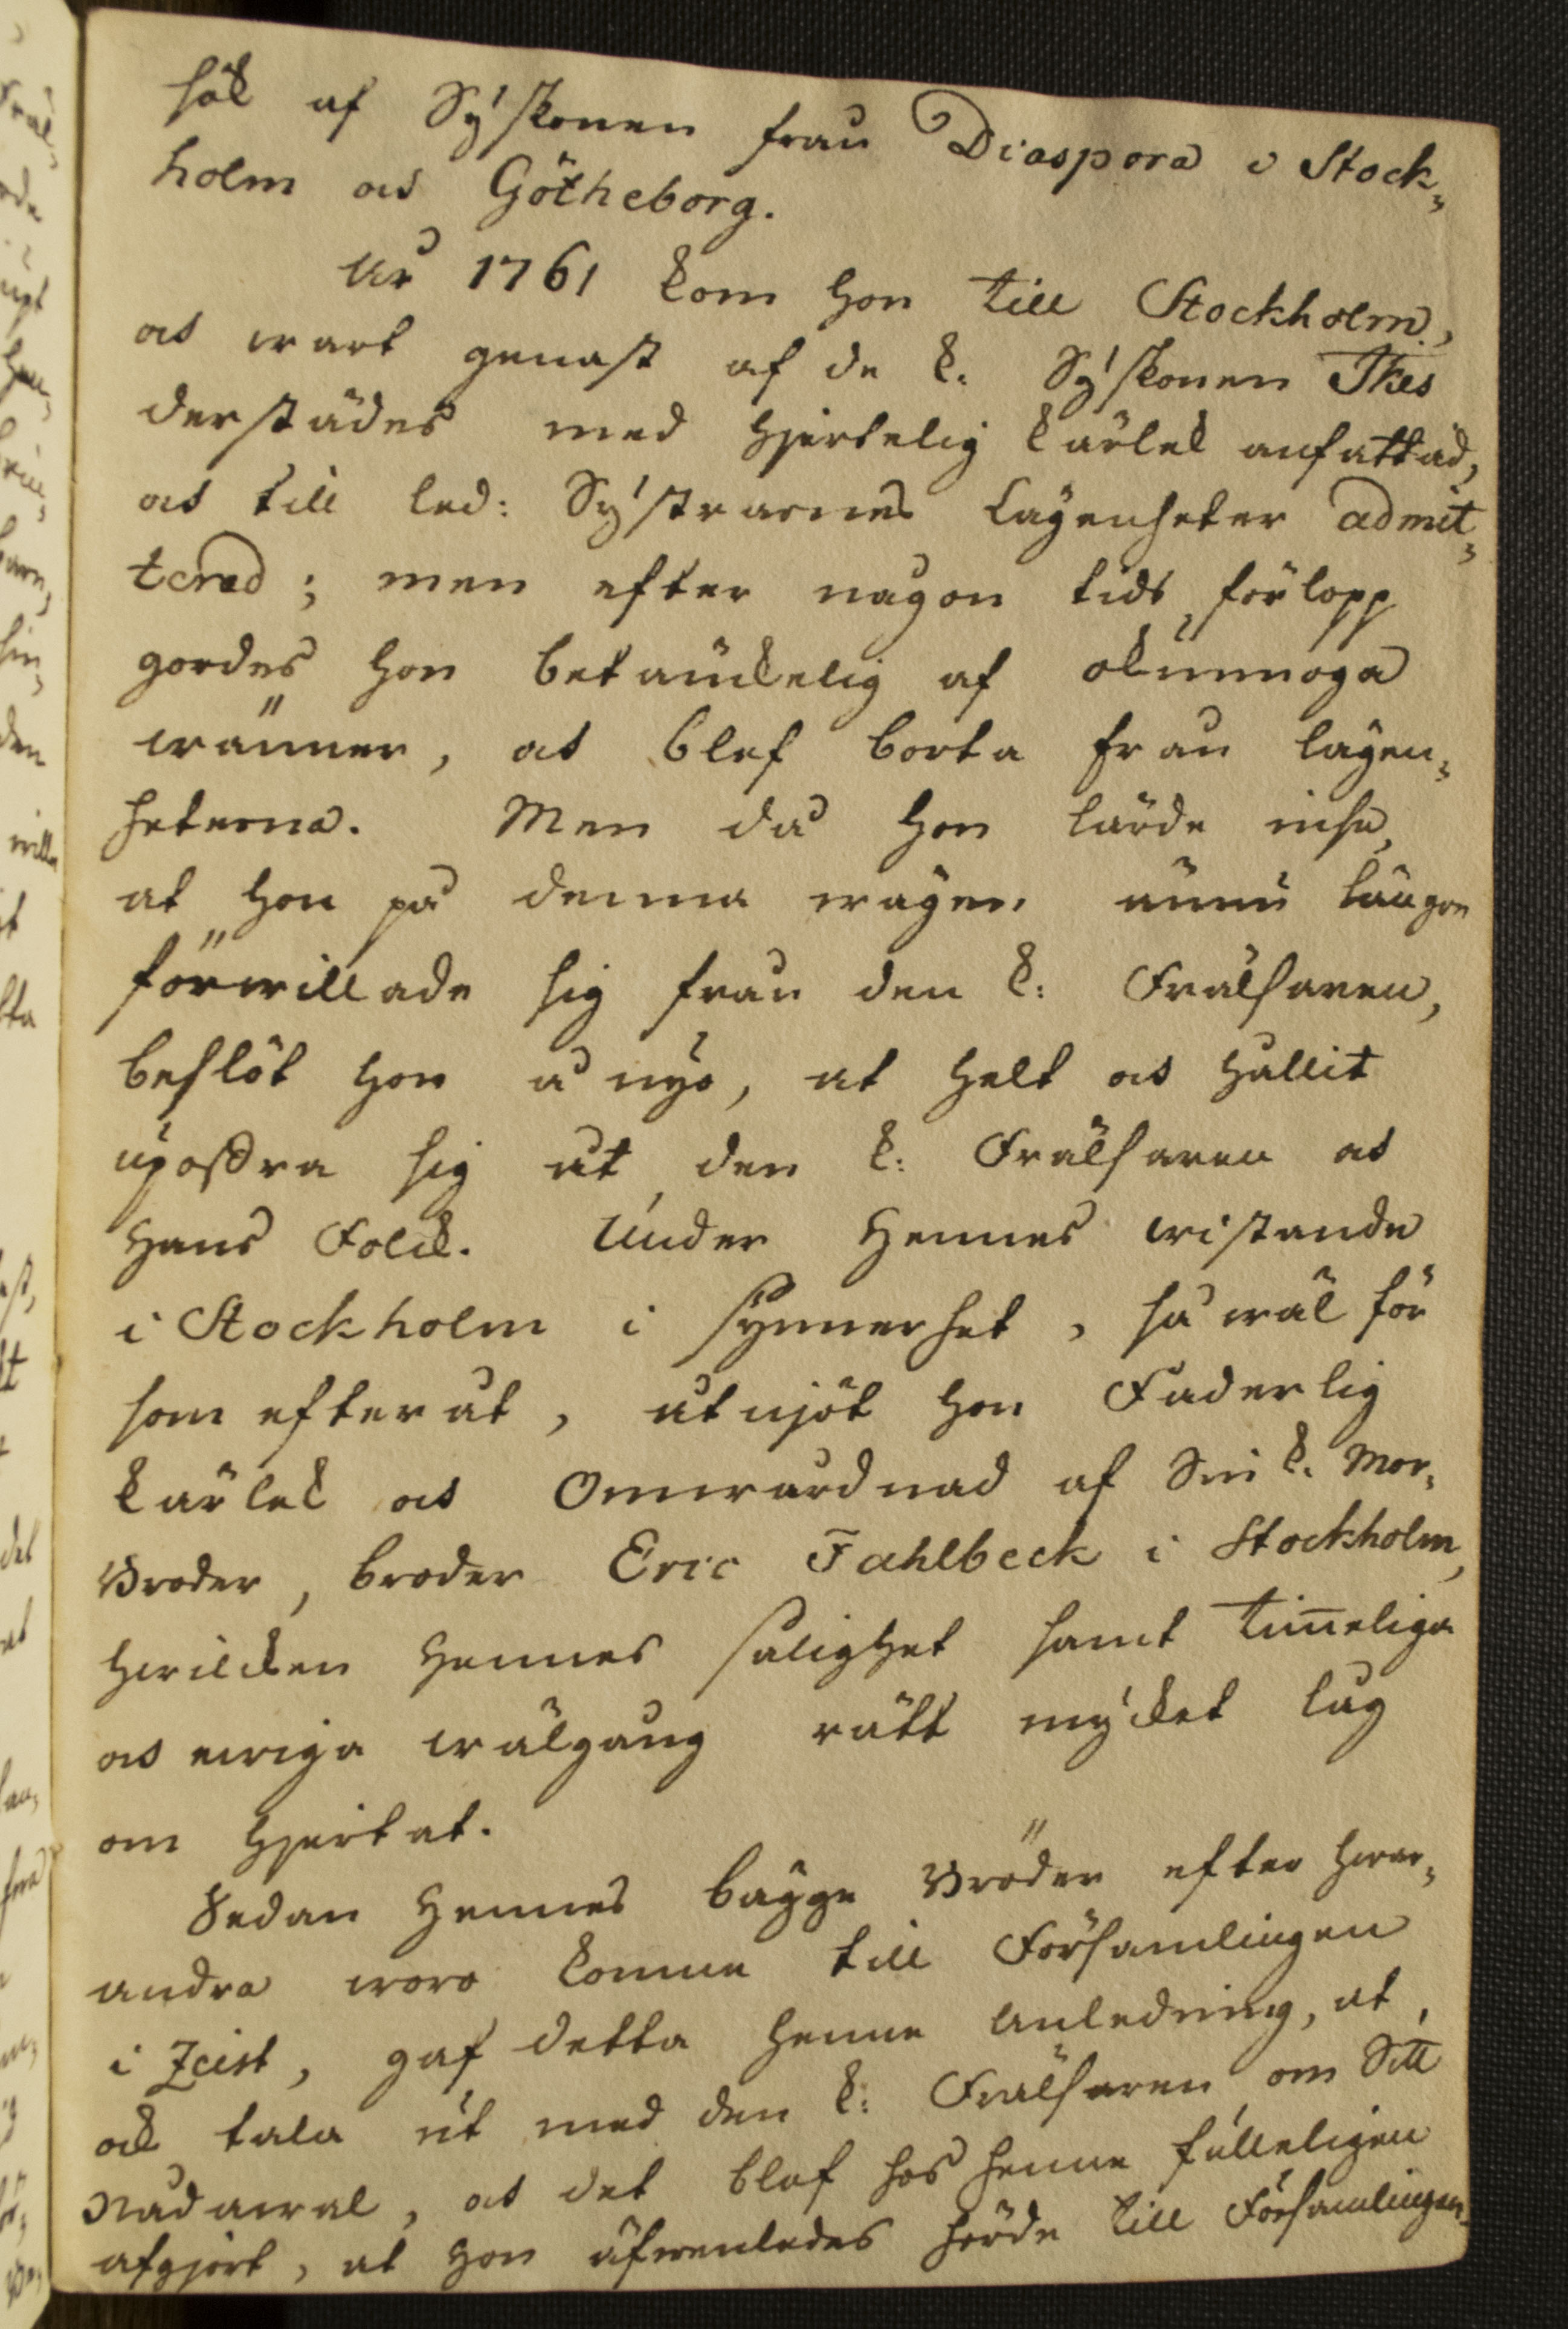 sök af Syskonen från Diaspora i Stock-
holm och Götheborg.
År 1761 kom hon till Stockholm,
och wart genast af de k: Syskonen
derstädes med hjertelig kärlek anfattad,
och till led: Systrarnes Lägenheter admit-
terad; men efter någon tids förlopp
gordes hon betänckelig af okunnoga
wänner, och blef borta från lägen-
heterna. Men då hon lärde inse,
at hon på denna wägen ännu längre
förwillade sig från den k: Frälsaren,
beslöt hon å nyo, at helt och hållit
upoffra sig åt den k: Frälsaren och
Hans Folck. Under Hennes wistande
i Stockholm i synnerhet, så wäl för
som efteråt, åtnjöt hon Faderlig
kärlek och Omwårdnad af Sin k. Mor-
Broder, broder Eric Fahlbeck i Stockholm,
hwilcken Hennes salighet samt tim̅eliga
och ewiga wälgång rätt mycket låg
om hjertat.
Sedan Hennes bägge Bröder efter hwar-
andra woro komne till Församlingen
i Zeist, gaf detta henne Anledning, at
ock tala ut med den k: Frälsaren om Sitt
Nådawal, och det blef hos henne fulleligen
afgjort, at hon äfwenledes hörde till Församlingen.